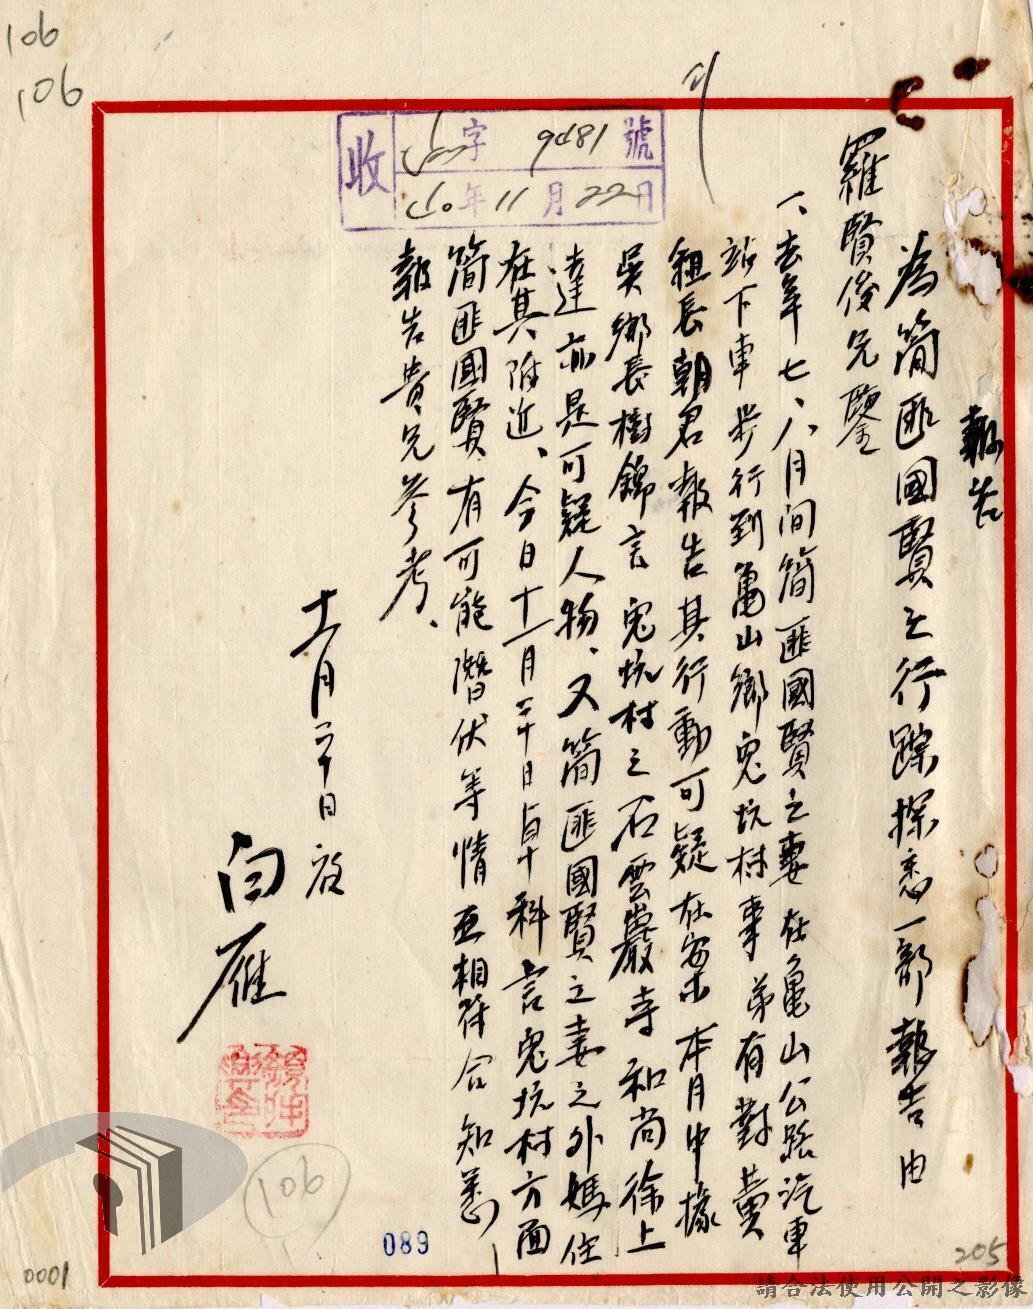 106
106
收 字 9481 號
40年11月22日
報告
為簡匪國賢之行踪探悉一部報告由
羅賢俊兄鑒
一、去年七、八月间簡匪國賢之妻在龜山公路汽車
站下車步行到龜山鄉兔坑村事弟有對黄
組長朝君報告其行動可疑在案本月中據
吳鄉長樹錦言兔坑村之石雲巖寺和尚徐上
達亦是可疑人物、又簡匪國賢之妻之外媽住
在其附近、今日十一月二十日貞十科言兔坑村方面
簡匪國賢有可能潛伏等情互相符合知悉
報告貴兄參考、
十一月二十日啟
白雁
106
089
205
0001
請合法使用公開之影像